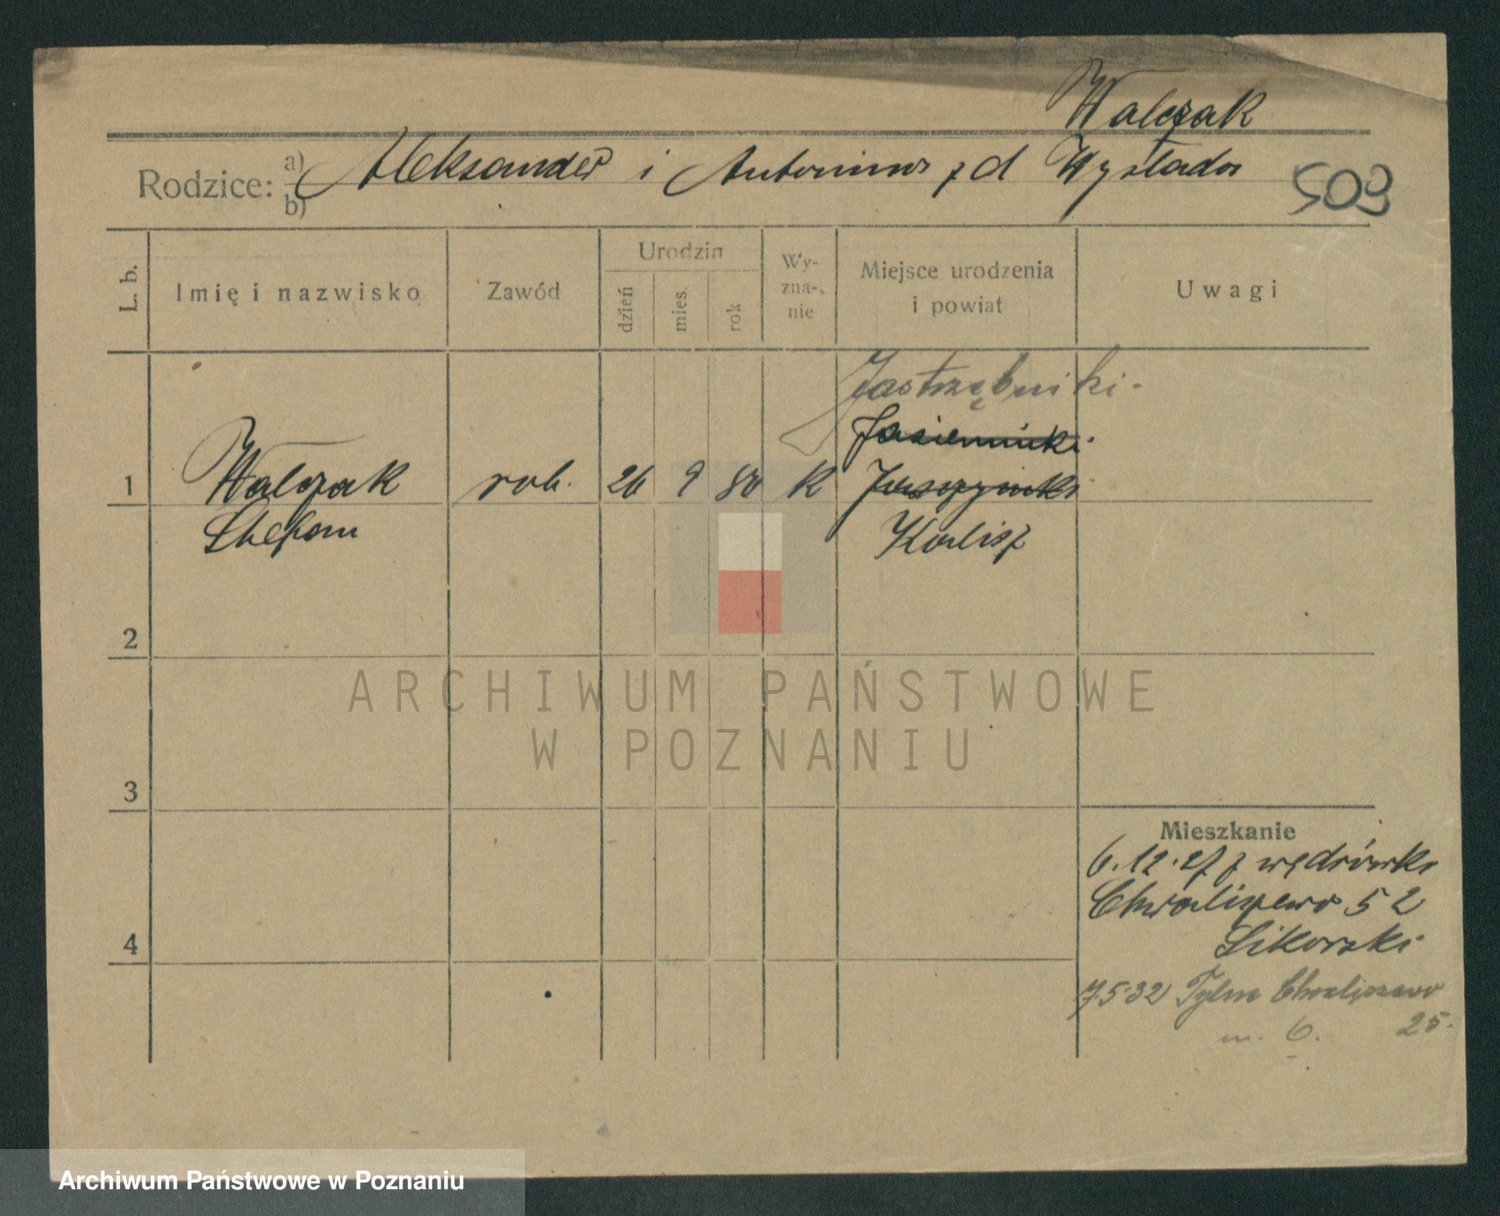 Walczak
Rodzice: a) Aleksander i Antonina z d Wysłada
b)
509
L. b.
Imię i nazwisko
Zawód
Urodzin
dzień
mies.
rok
Wy-
zna-
nie
Miejsce urodzenia
i powiat
Uwagi
Jastrzębniki
Jasieminki
1 Walczak rob. 26 9 80 K Jaszczyniki
Stefan Kalisz
2
3
4
Mieszkanie
6.12.27 z wędrówki
Chwaliszewo 52
Sikorski
7.5.32 Tylne Chwaliszewo
m. 6. 25.
ARCHIWUM PAŃSTWOWE
W POZNANIU
Archiwum Państwowe w Poznaniu